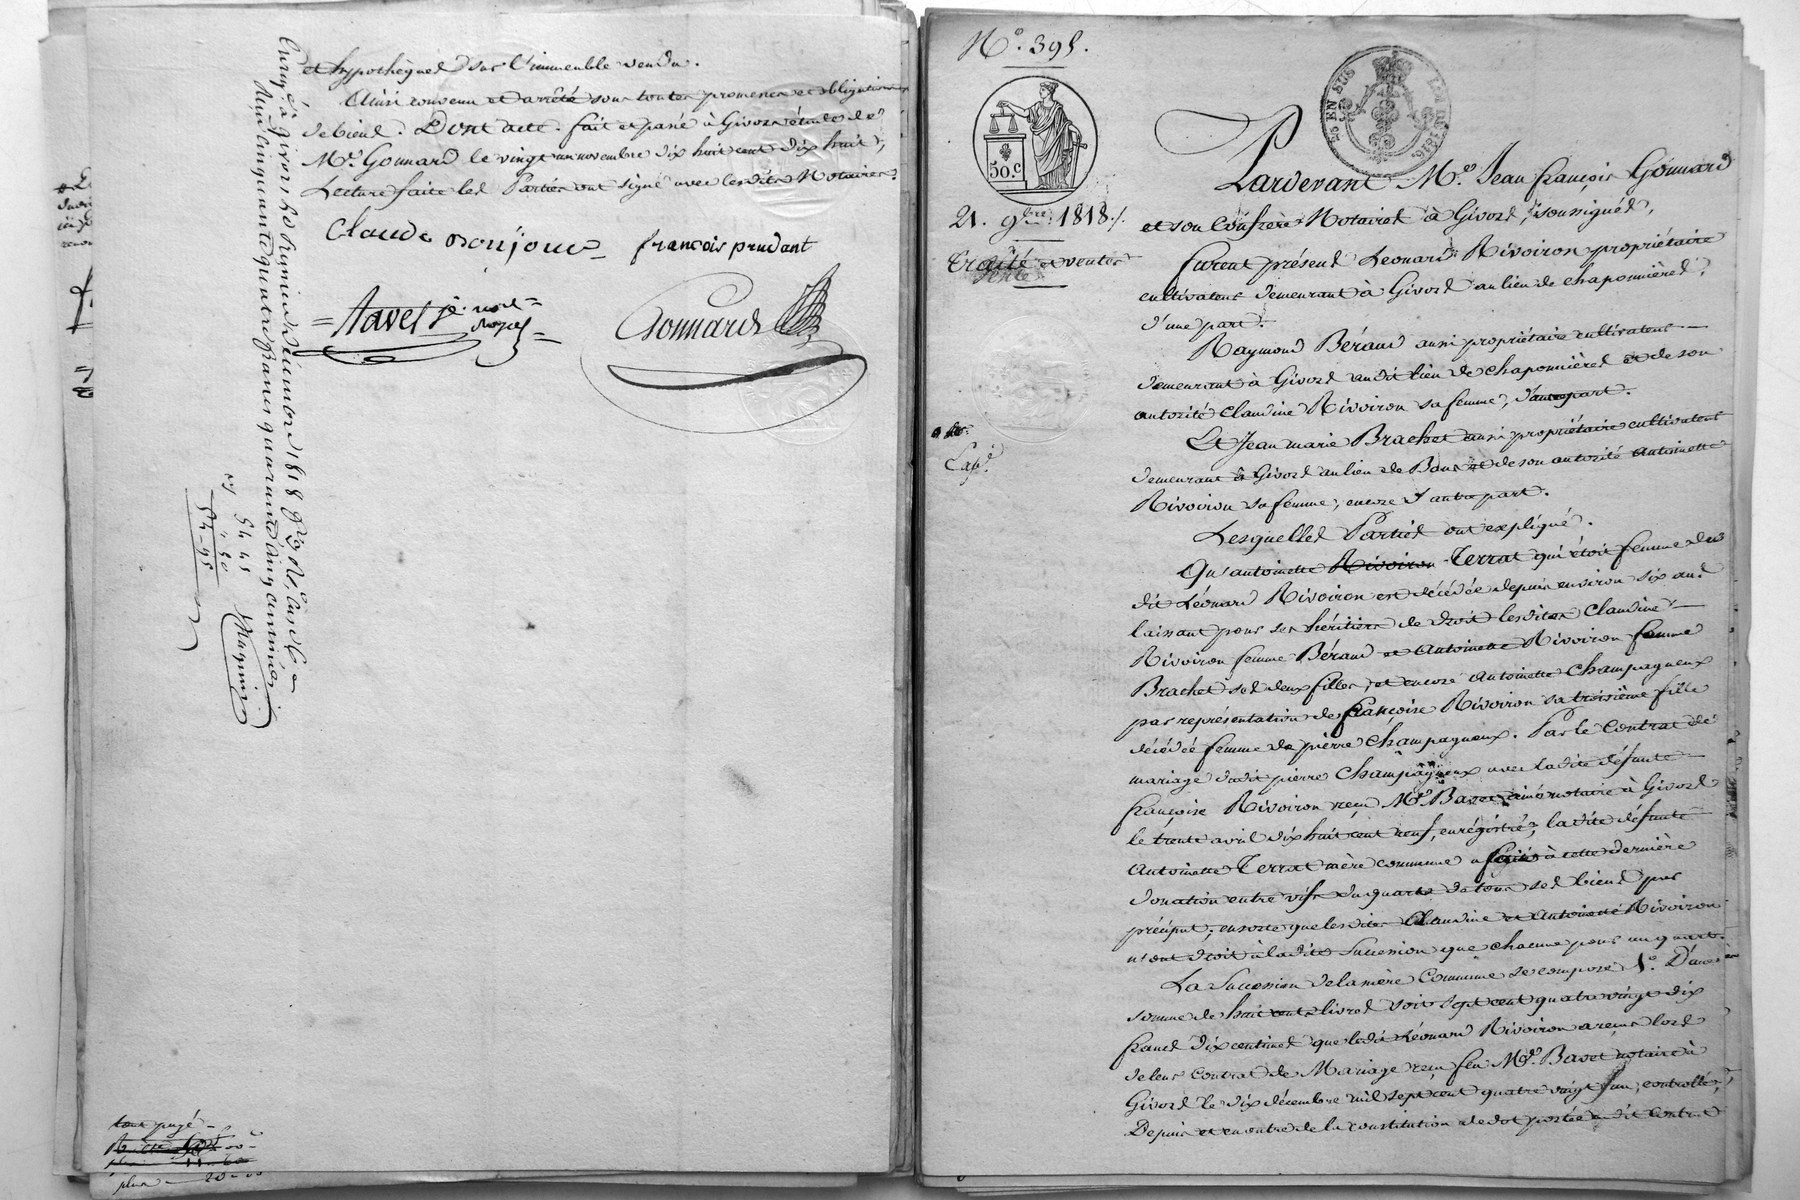 et hypothèques sur l'immeuble vendu.
Ainsi convenu et arrêté sous toutes promesses et obligations
de biens. Dont acte. fait et passé à Givors étude de
Me. Gonnard le vingt un novembre dix huit cent dix huit,
Lecture faite les Parties ont signé avec lesdits Notaires.
Claude Bonjour françois prudant
Gonnard
Enregé à Givors le décembre 1818
Reçu cinquante quatre francs quarante cinq centimes
54 45
tout payé
plus 20-00
No. 395.
50 c.
EN SUS
21. 9bre. 1818./.
Traité et ventes
Vente
Expé.
Pardevant Me. Jean françois Gonnard
et son Confrère Notaires à Givors, soussignés,
furent présens Léonard Rivoiron propriétaire
cultivateur demeurant à Givors au lieu de chaponnières,
d'une part.
Raymond Béraud aussi propriétaire cultivateur
demeurant à Givors audit lieu de chaponnières et de son
autorité Claudine Rivoiron sa femme, d'autre part.
Et Jean marie Brachet aussi propriétaire cultivateur
demeurant à Givors au lieu de Bans et de son autorité Antoinette
Rivoiron sa femme, encore d'autre part.
Lesquelles Parties ont expliqué.
Qu'antoinette Rivoiron Terrat qui étoit femme du
dit Léonard Rivoiron est décédée depuis environ six ans
laissant pour ses héritiers de droit lesdites Claudine
Rivoiron femme Béraud et Antoinette Rivoiron femme
Brachet ses deux filles, et encore Antoinette Champagneux
par représentation de françoise Rivoiron sa troisième fille
décédée femme de pierre Champagneux. Par le Contrat de
mariage dudit pierre Champagneux avec ladite défunte
françoise Rivoiron reçu Me. Bavet ainé notaire à Givors
le trente avril dix huit cent neuf, enrégistré, ladite défunte
Antoinette Terrat mère commune a fait à cette dernière
donation entre vifs du quart de tous ses biens par
préciput, ensorte que lesdites Claudine et Antoinette Rivoiron
n'ont droit à ladite Succession que chacune pour un quart.
La Succession de la mère Commune se compose 1o. D'une
somme de huit cents livres soit sept cent quatre vingt dix
francs dix centimes que ledit Léonard Rivoiron a reçus lors
de leur contrat de Mariage reçu feu Me. Bavet notaire à
Givors le dix décembre mil sept cent quatre vingt un, contrôlé,
Depuis et en outre de la constitution de dot portée audit contrat